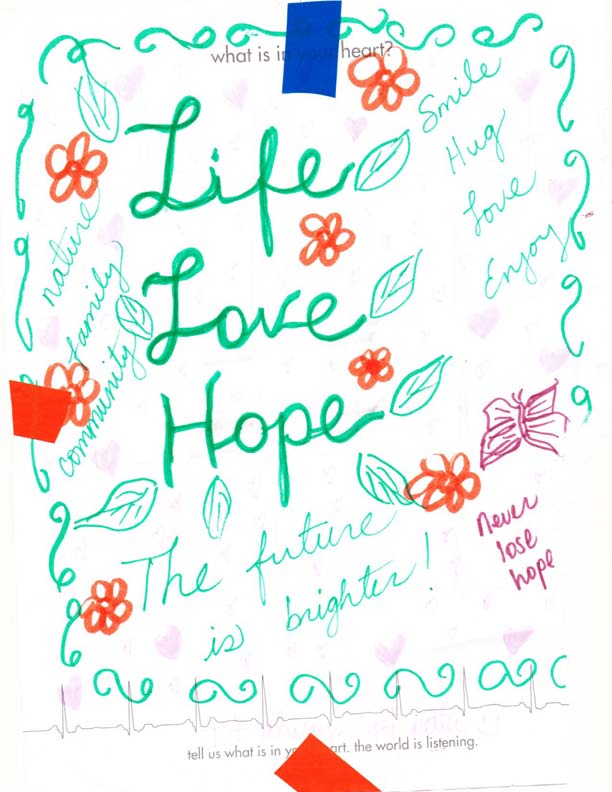 what is in your heart?
Life
Love
Hope
Smile
Hug
Love
Enjoy
nature
family
community
Never
lose
hope
The future
is brighter!
tell us what is in your heart. the world is listening.